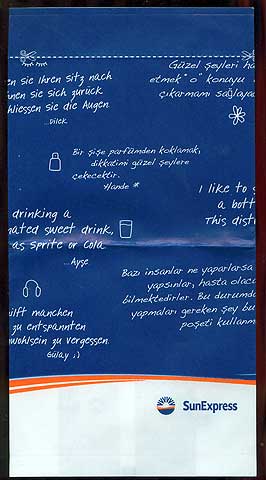 en sie Ihren sitz nach
hnen sie sich zurück
hliessen sie die Augen
...Dilek
Güzel şeyleri ha
etmek "o" konuyu
çıkarmamı sağlayac
Bir şişe parfümden koklamak,
dikkatimi güzel şeylere
çekecektir.
Hande *
I like to s
a bott
This dist
drinking a
nated sweet drink,
as sprite or Cola
...Ayşe
Bazı insanlar ne yaparlarsa
yapsınlar, hasta olaca
bilmektedirler. Bu durumda
yapmaları gereken şey bu
poşeti kullanm
ilft manchen
zu entspannten
nwohlsein zu vergessen.
Gülay ;)
SunExpress